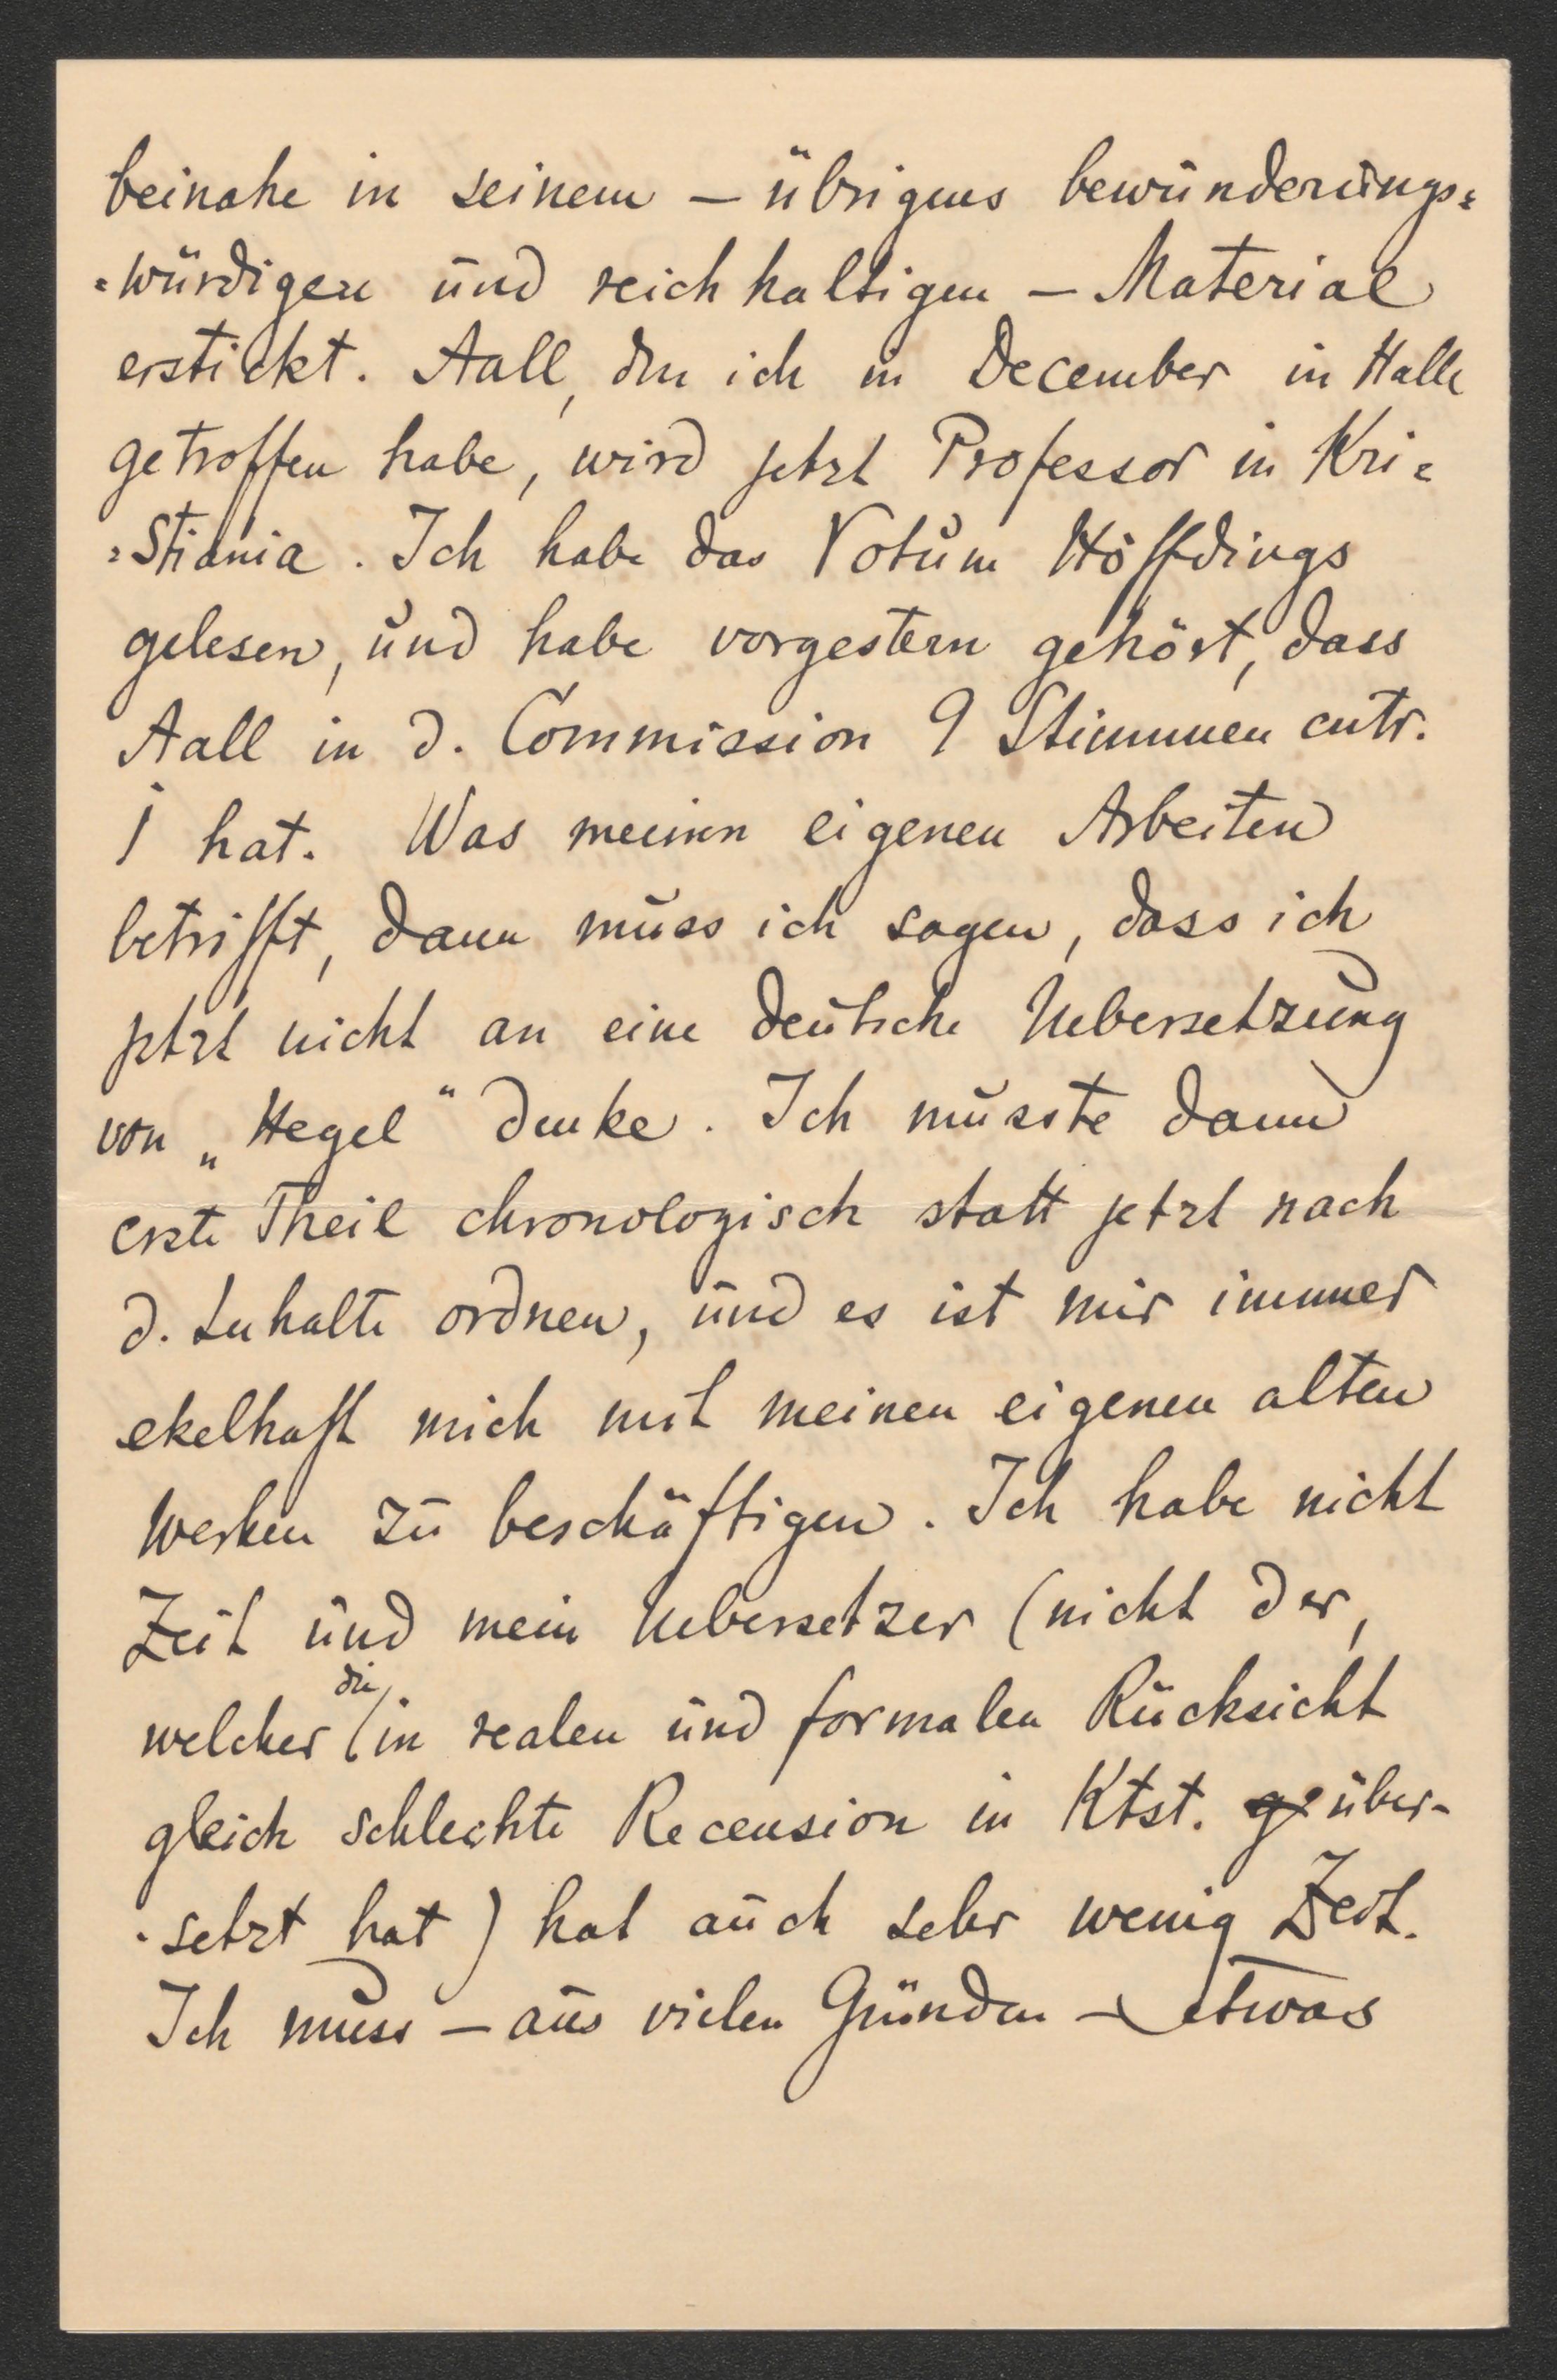 beinahe in seinem — übrigens bewunderungs=
=würdigen und reichhaltigen — Material
erstickt. Aall, den ich in December in Halle
getroffen habe, wird jetzt Professor in Kri=
=stiania. Ich habe das Votum Höffdings
gelesen, und habe vorgestern gehört, dass
Aall in d. Commission 9 Stimmen cntr.
1 hat. Was meinen eigenen Arbeiten
betrifft, dann muss ich sagen, dass ich
jetzt nicht an eine deutsche Uebersetzung
von „Hegel“ denke. Ich musste dann
erste Theil chronologisch statt jetzt nach
d. Inhalte ordnen, und es ist mir immer
ekelhaft mich mit meinen eigenen alten
Werken zu beschäftigen. Ich habe nicht
Zeit und mein Uebersetzer (nicht der,
welcher die in realen und formalen Rücksicht
gleich schlechte Recension in Ktst. ge über-
-setzt hat) hat auch sehr wenig Zeit.
Ich muss — aus vielen Gründen — etwas